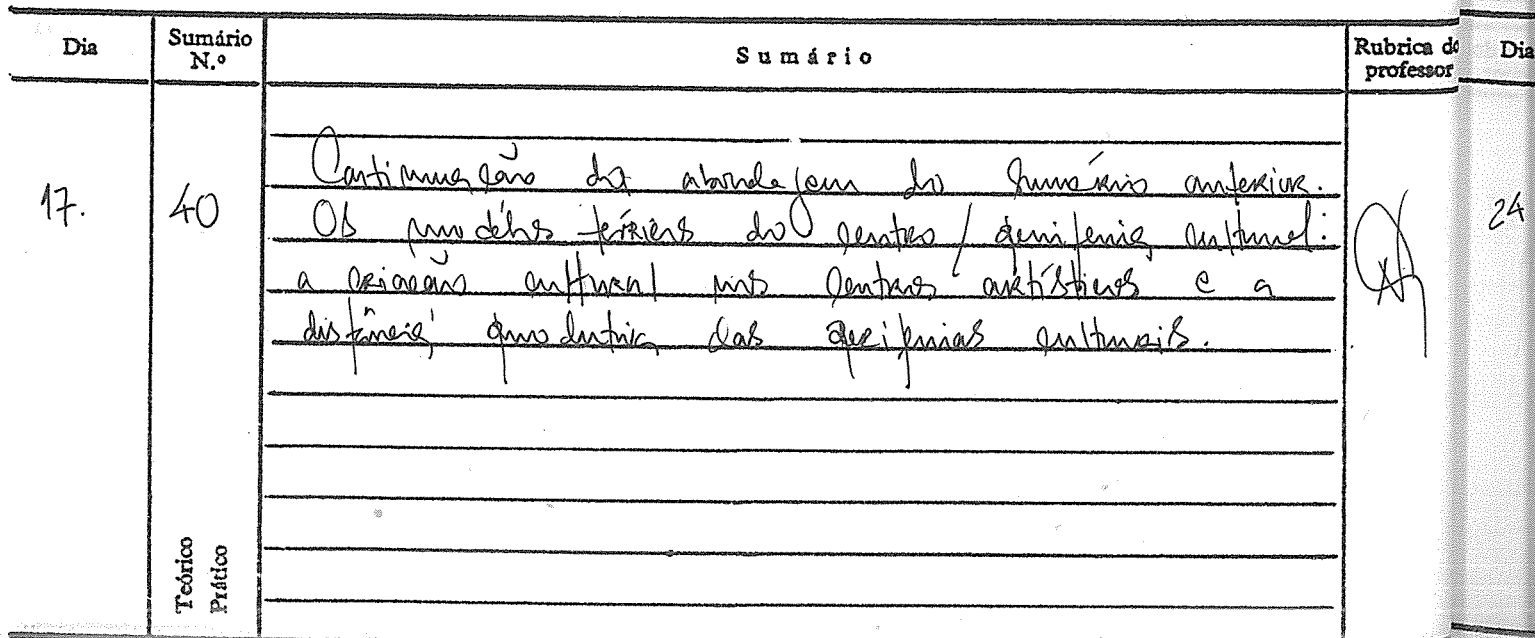 Dia
Sumário N.º
Sumário
Rubrica do professor
Dia
17.
40
24
Continuação da abordagem do sumário anterior.
Os modelos teóricos do centro / periferia cultural:
a criação cultural nos centros artísticos e a
distância produtiva das periferias culturais.
Teórico
Prático